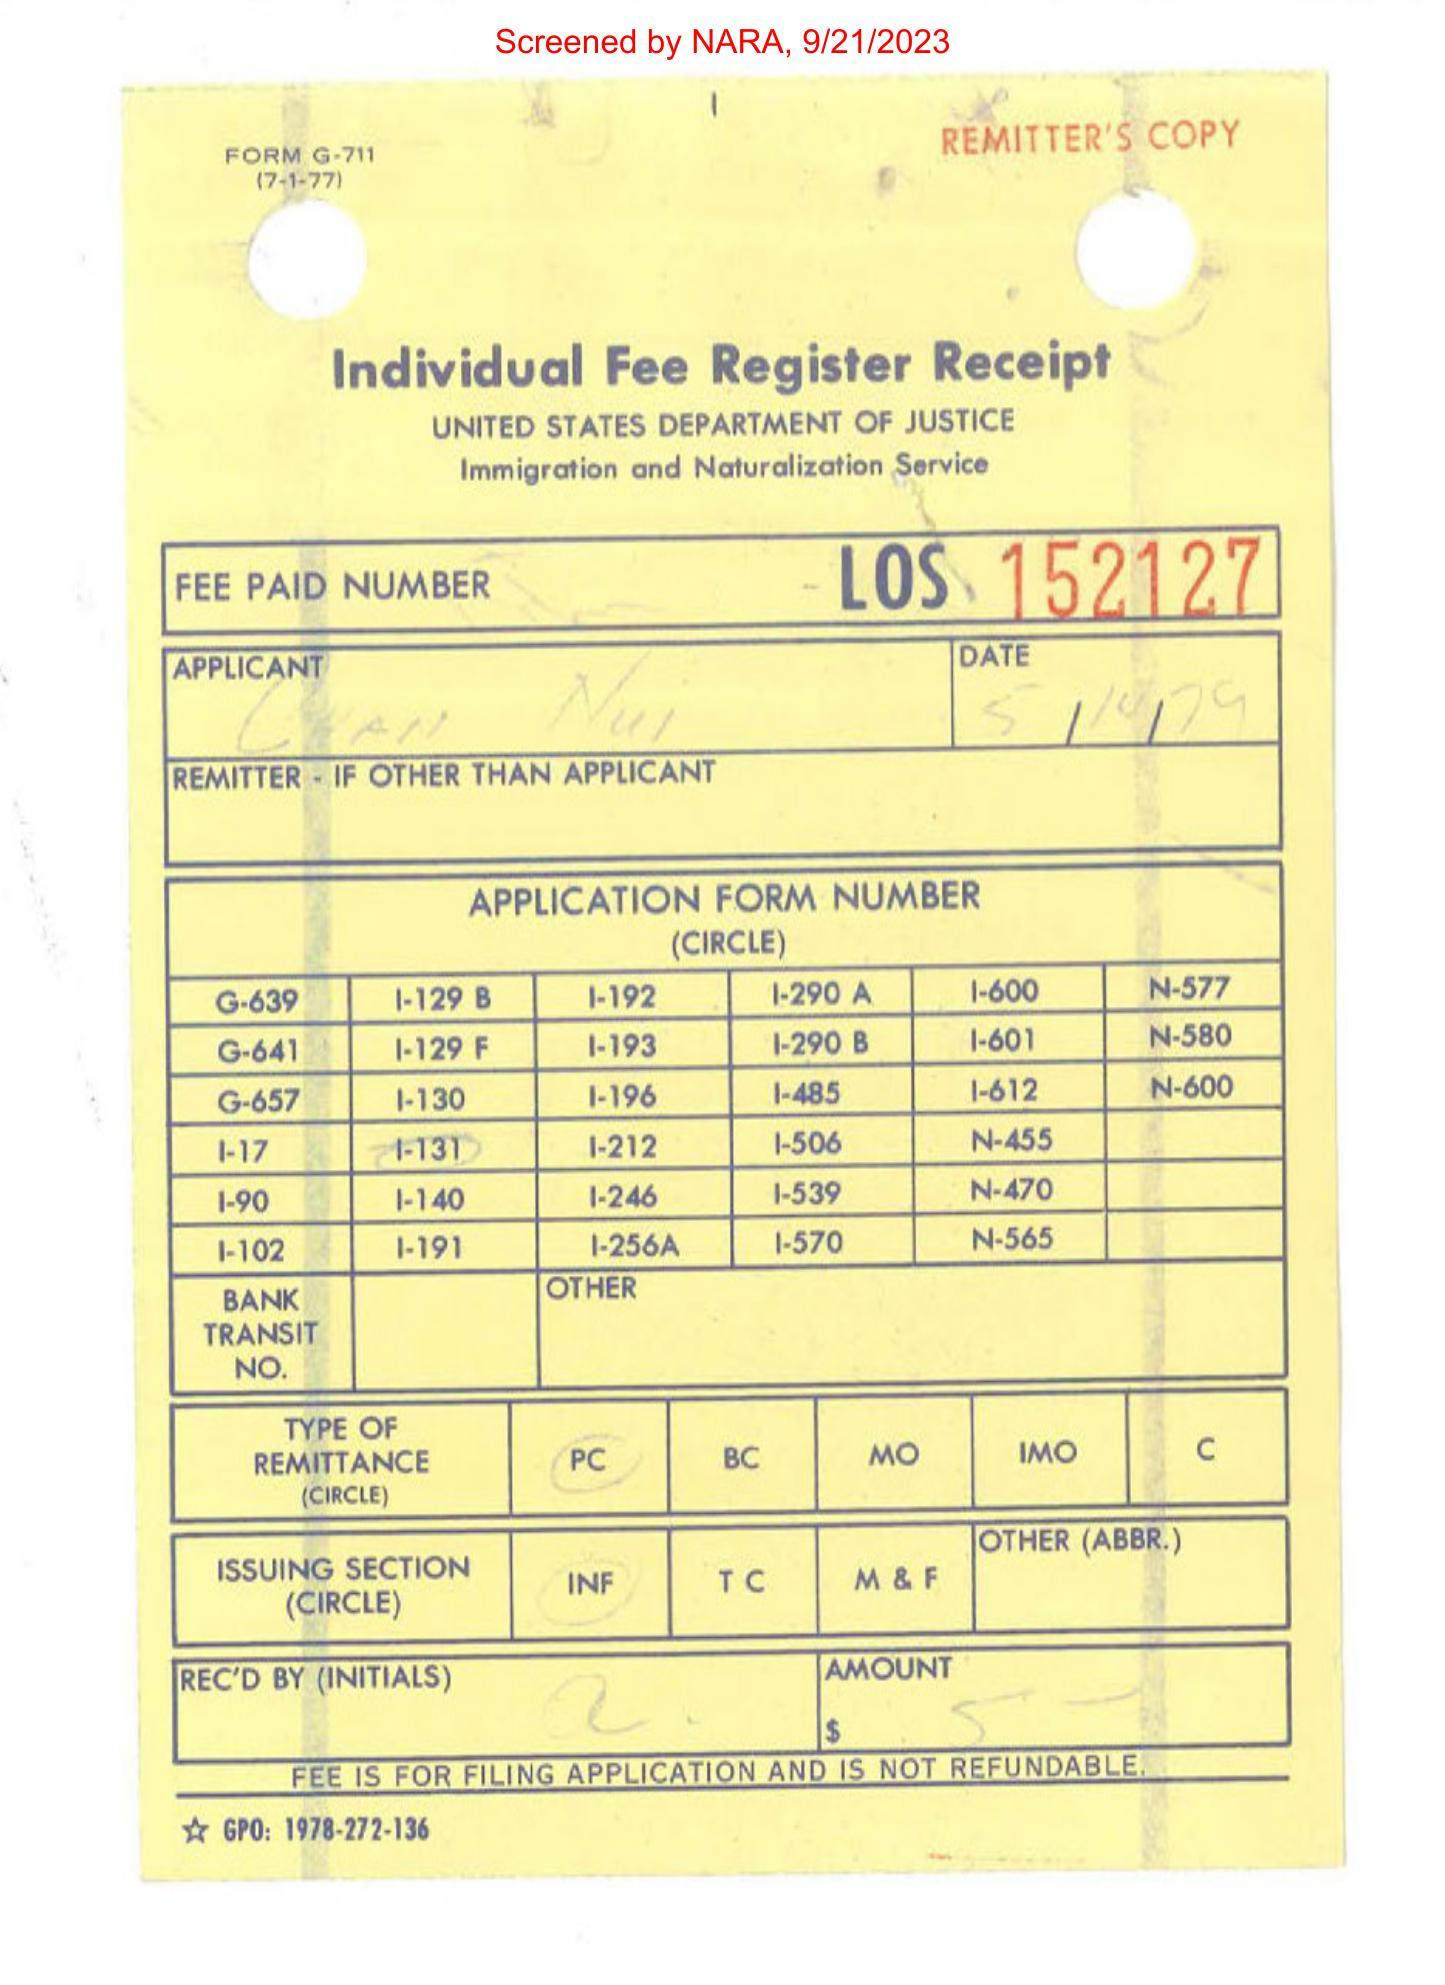 Screened by NARA, 9/21/2023
FORM G-711
(7-1-77)
REMITTER'S COPY
Individual Fee Register Receipt
UNITED STATES DEPARTMENT OF JUSTICE
Immigration and Naturalization Service
FEE PAID NUMBER LOS 152127
APPLICANT DATE
Nui 5/14/79
REMITTER - IF OTHER THAN APPLICANT
APPLICATION FORM NUMBER
(CIRCLE)
G-639 I-129 B I-192 I-290 A I-600 N-577
G-641 I-129 F I-193 I-290 B I-601 N-580
G-657 I-130 I-196 I-485 I-612 N-600
I-17 I-131 I-212 I-506 N-455
I-90 I-140 I-246 I-539 N-470
I-102 I-191 I-256A I-570 N-565
BANK TRANSIT NO. OTHER
TYPE OF REMITTANCE (CIRCLE) PC BC MO IMO C
ISSUING SECTION (CIRCLE) INF T C M & F OTHER (ABBR.)
REC'D BY (INITIALS) AMOUNT
$ 5 —
FEE IS FOR FILING APPLICATION AND IS NOT REFUNDABLE.
☆ GPO: 1978-272-136